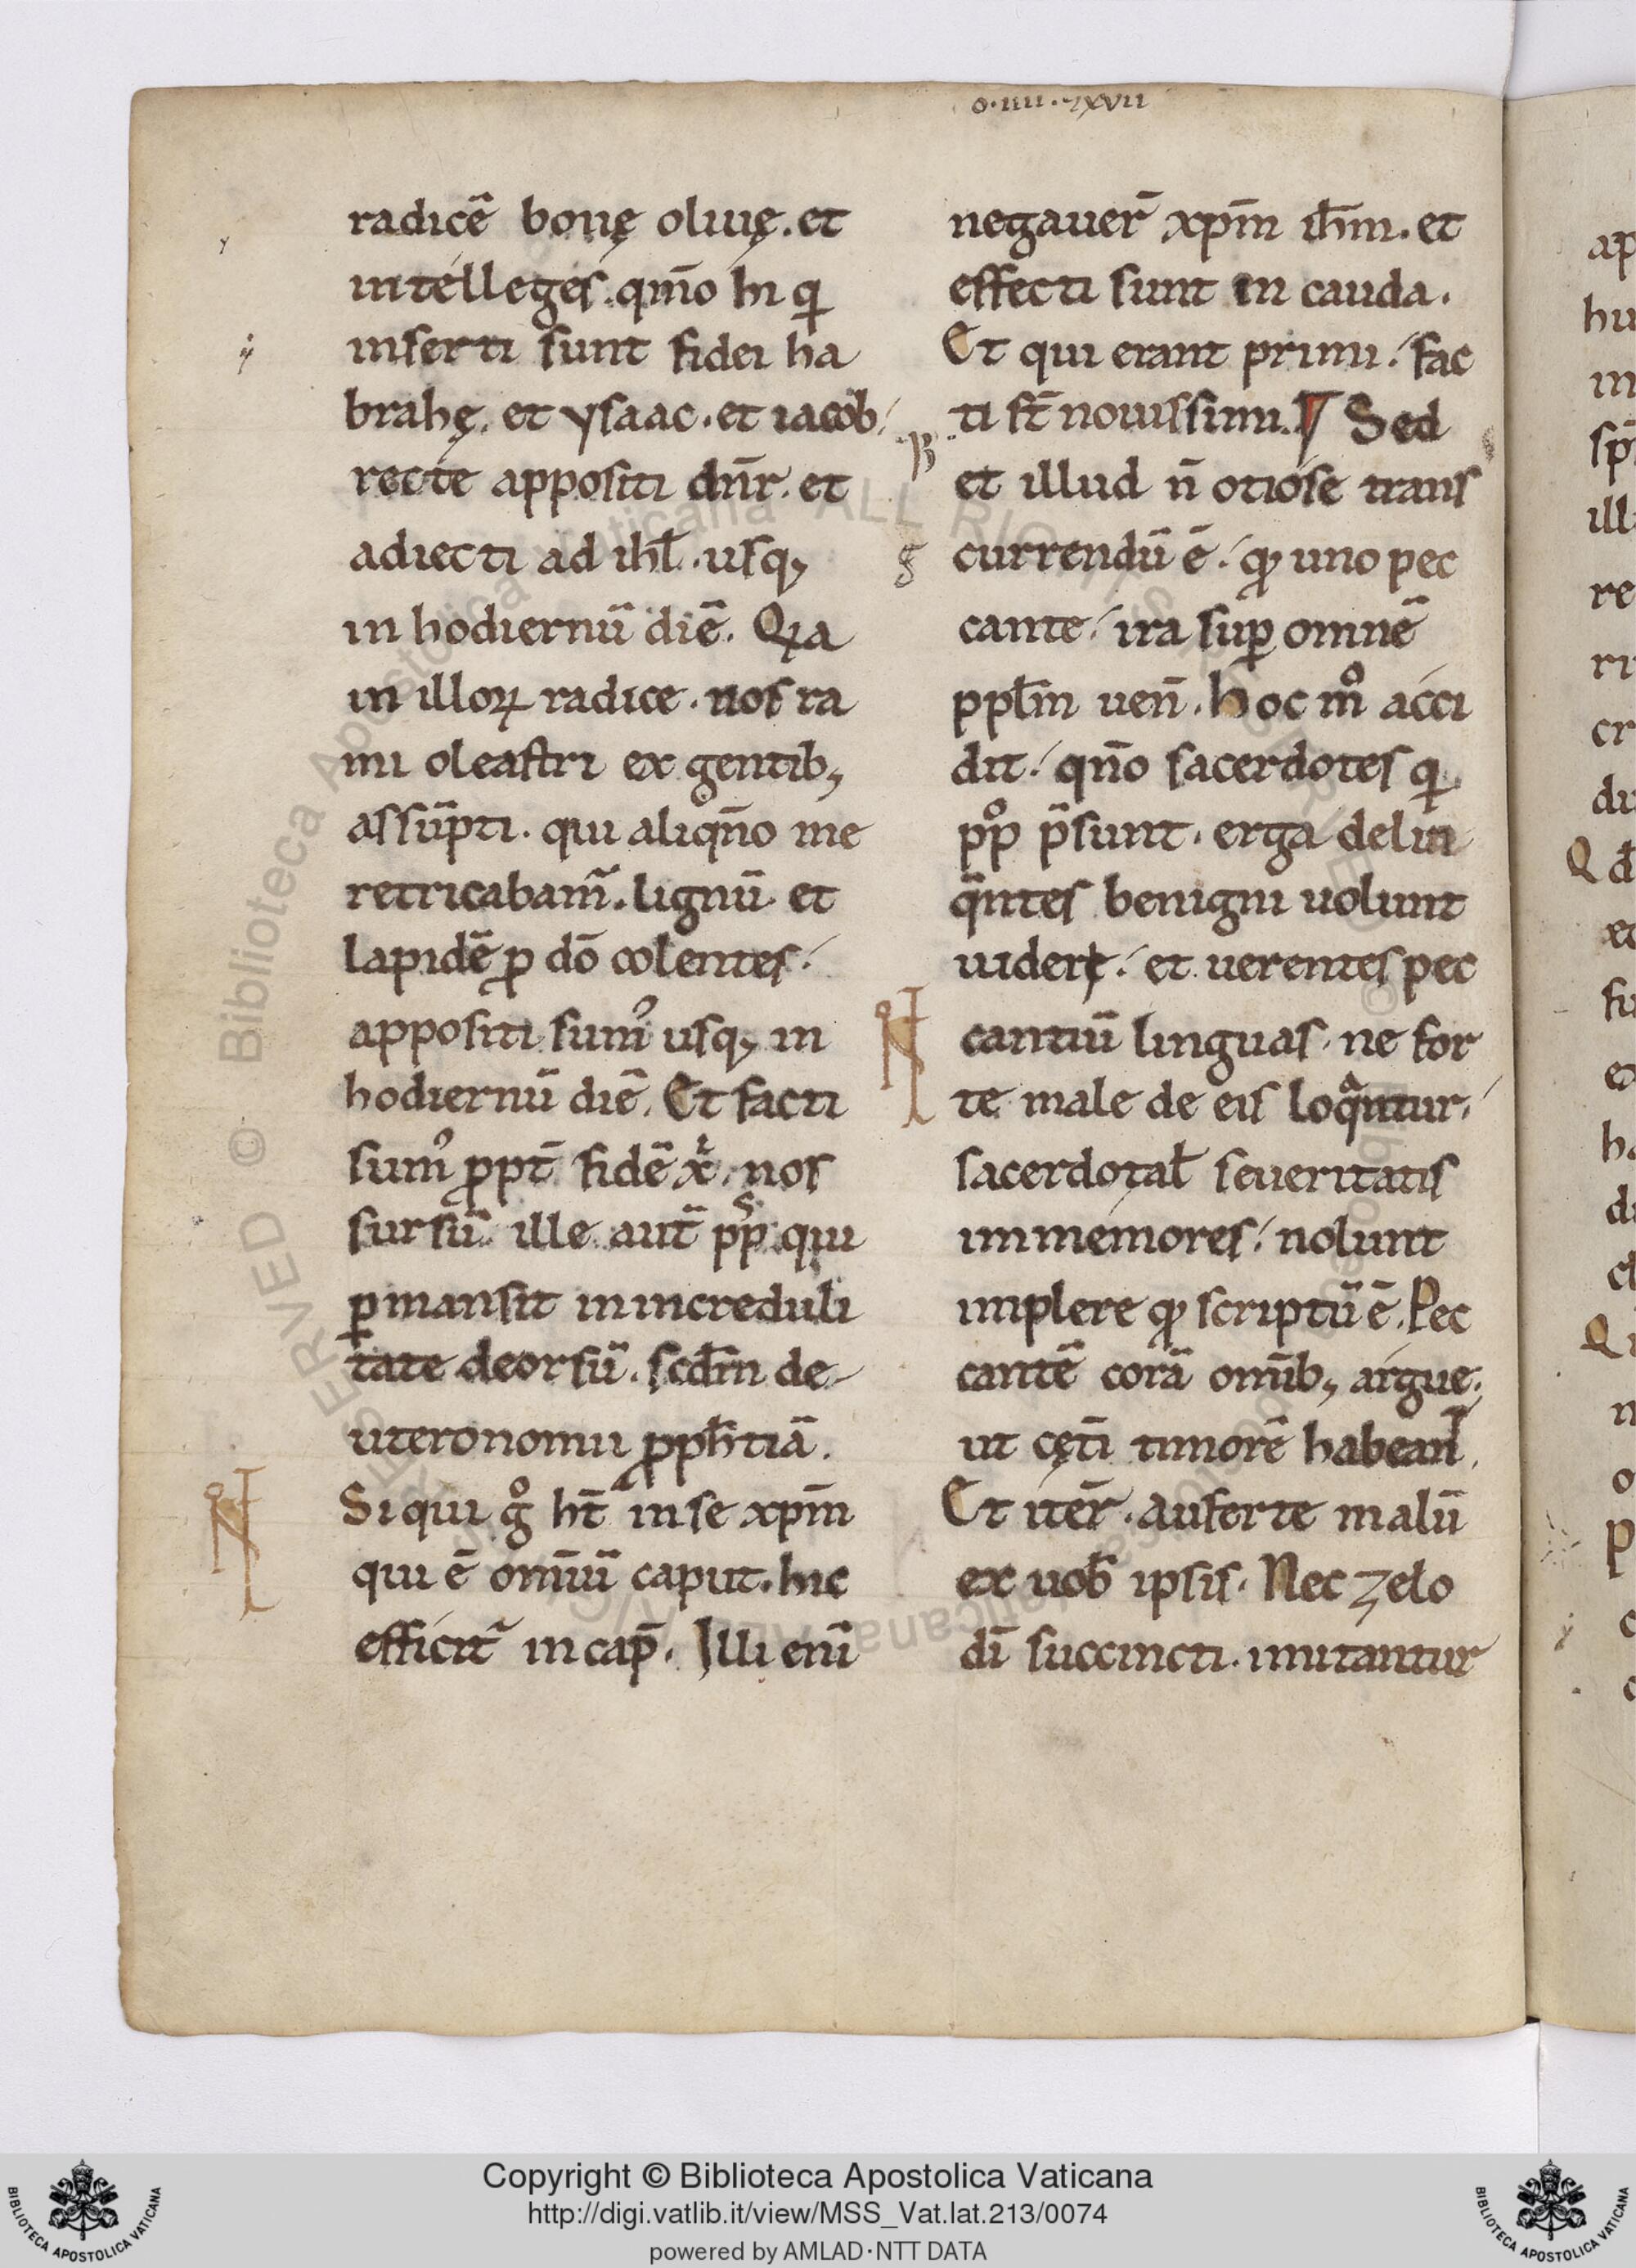 o·iiii·⁊xvii
radicē bonę oliuę. et
intelleges. qm̄o hi q̇
inserti sunt fidei ha
brahę. et ysaac. et iacob
recte appositi dn̄r. et
adiecti ad ihl̄. usq;
in hodiernū diē. Qia
in illoꝝ radice. nos ra
mi oleastri ex gentib;
assūpti. qui aliqn̄o me
retricabam̃. lignū et
lapidē ꝓ dō colentes.
appositi sumꝰ usq; in
hodiernū diē. Et facti
sumꝰ ꝓpt̄ fidē xi. nos
sursū. ille aut̄ ppls qui
ꝑmansit in increduli
tate deorsū. scdm̄ de
uteronomii ꝓph̄tiā.
Si qui gͦ ht̄ in se xpm̄
qui ē om̄iū caput. hic
efficit̃ in cap̄. Illi enī
negauer̄ xpm̄ ihm̄. et
effecti sunt in cauda.
Et qui erant primi. fac
ti st̄ nouissimi. ¶ Sed
et illud n̄ otiose trans
currendū ē. qđ uno pec
cante. ira suꝑ omnē
ppl̄m uen̄. Hoc mͦ acci
dit. qn̄o sacerdotes q̇
ppͦ p̄sunt. erga delin
qᵃntes benigni uolunt
uideri. et uerentes pec
cantiū linguas. ne for
te male de eis loqᵃntur.
sacerdotal̄ seueritatis
immemores. nolunt
implere qđ scriptū ē. Pec
cantē corā omīb; argue.
ut cęt̄i timorē habean̄t.
Et iter̄. auferte malū
ex uob̄ ipsis. Nec zelo
dī succincti. imitantur
Copyright © Biblioteca Apostolica Vaticana
http://digi.vatlib.it/view/MSS_Vat.lat.213/0074
powered by AMLAD·NTT DATA
BIBLIOTECA APOSTOLICA VATICANA
BIBLIOTECA APOSTOLICA VATICANA